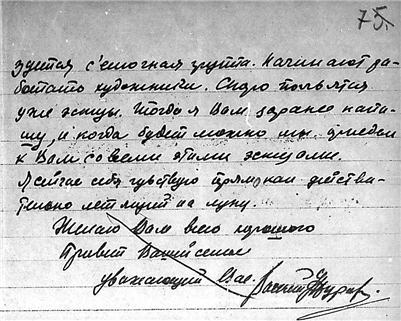 75.
здется с'емочная группа. Начинают ра-
ботать художники. Скоро появятся
уже эскизы. Тогда я Вам заранее напи-
шу, и когда будет можно мы приедем
к Вам со всеми этими эскизами.
Я сейчас себя чувствую прямо как действи-
тельно летящий на луну.
Желаю Вам всего хорошего
Привет Вашей семье
уважающий Вас